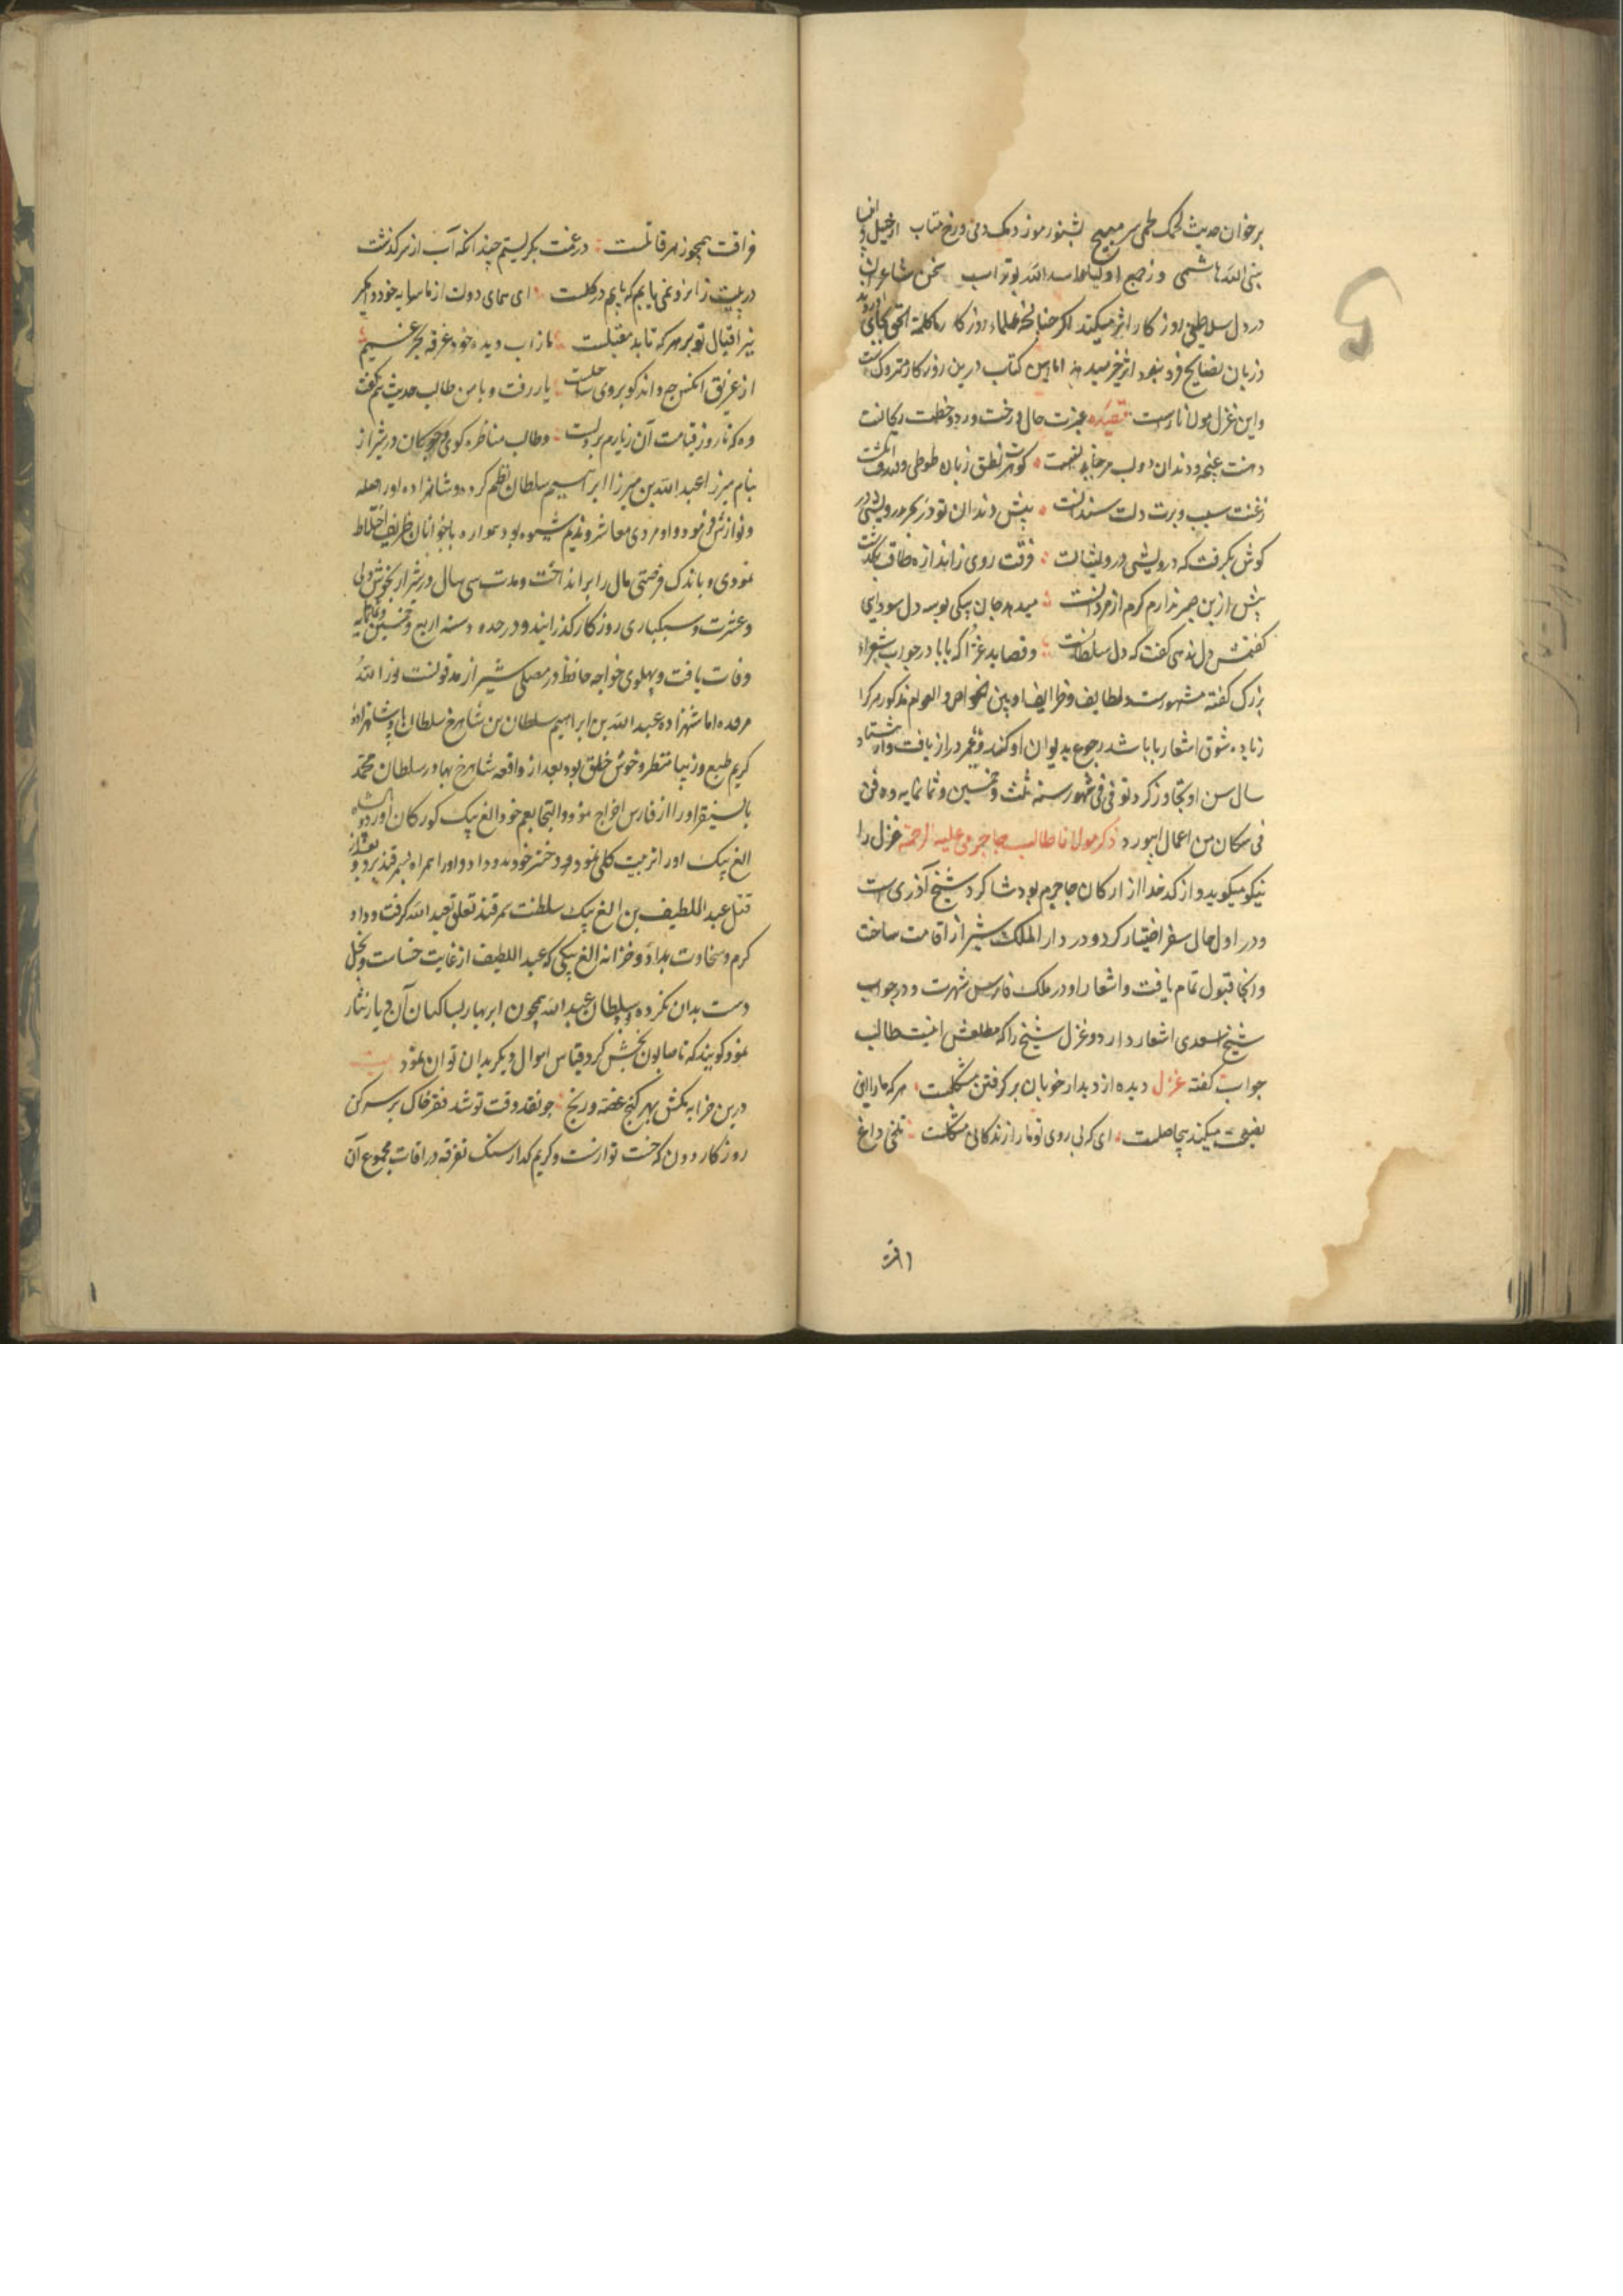 برخوان حدیث لحمک لحمی سر مپیچ بشنو رموز دمک دمی و رخ متاب از خیل انبیا
نبی الله هاشمی و ز جمع اولیا اسد الله بوتراب سخن شاعران
در دل سلاطین روزکار اثر میکند اکر چنانچه علماء روزکار کلمة الحق بجای
و زبان نصایح فرو نبود اثر خیر میدهد اما این کتاب درین روزکار متروکست
واین غزل مولانا راست قصیده عبرت حال درخت ورد و خطت ریحانت
دهنت غنچه و دندان و لب مرجان نطق زبان طوطی و
زغنت سیب و برت دلت سندانت پیش دندان تو در بحر درویشی در
کوش بکرفت که درویشی درویشانت فرقت روی ز اندازه طاقت بگذشت
پیش ازین صبر ندارم کرم از مردانست میدهد جان بیکی بوسه دل سودای
کفتمش دل ندهی کفت که دل سلطانست و قصاید غرا که بابا در جواب شعراء
بزرک کفته مشهورست و لطایف و ظرایف او بین الخواص و العوام مذکور مرکرا
زیاده شوق اشعار بابا باشد رجوع بدیوان او کند و عمر دراز یافت و از هشتاد
سال سن او تجاوز کرد توفی فی شهور سنه ثلث و خمسین و ثمانمایه و دفن
فی مکان من اعمال ابیورد ذکر مولانا طالب جاجرمی علیه الرحمة غزل را
نیکو میکوید و از کدخدا ارکان جاجرم بود شاکرد شیخ آذری است
و در اول حال سفر اختیار کرد و در دار الملک شیراز اقامت ساخت
و انجا قبول تمام یافت و اشعار او در ملک فارس شهرت و در جواب
شیخ سعدی اشعار دارد و غزل شیخ را که مطلعش اینست طالب
جواب کفته غزل دیده از دیدار خوبان بر کرفتن مشکلست هر که ما را این
نصیحت میکند بیحاصلست ای که بی روی تو ما را زندکانی مشکلست تلخی داغ
فراقت همچو زهر قاتلست در غمت بکریستم چندانکه آب از سر کذشت
درپیت زانرو نمی یابم که پایم در کلست ای همای دولت از ما سایه خود وامکیر
نیر اقبال تو بر هر که تابد مقبلست ما ز آب دیده خود غرقه بحر غمیم
از غریق انکس چه داند کو بروی ساحلست یار رفت و با من طالب حدیثی نکفت
وه که تا روز قیامت آن زیارم بر دلست و طالب مناظره کوی و چوکان در شیراز
بنام میرزا عبد الله بن میرزا ابراهیم سلطان نظم کرد و شاهزاده اورا صله
و نوازش فرمود و او مردی معاشر و ندیم شیوه بود همواره با جوانان ظریف اختلاط
نمودی و باندک فرصتی مال را برانداخت و مدت سی سال در شیراز بخوش دلی
و عشرت و سبکباری روزکار کذرانید و در حدود سنه اربع و خمسین و ثمانمایه
وفات یافت و بپهلوی خواجه حافظ در مصلی شیراز مدفونست نور الله
مرقده اما شهزاده عبد الله بن ابراهیم سلطان بن شاهرخ سلطان پادشاهزاده
کریم طبع و زیبا منظر و خوش خلق بود بعد از واقعه شاهرخ بهادر سلطان محمد
بایسنقر اورا از فارس اخراج نمود و التجا بعم خود الغ بیک کورکان آورد و پادشاه
الغ بیک اورا تربیت کلی نمود و دختر خود بدو داد و اورا همراه بسمرقند برد و بعد از
قتل عبد اللطیف بن الغ بیک سلطنت سمرقند تعلق بعبد الله کرفت و داد
کرم و سخاوت بداد و خزانه الغ بیکی که عبد اللطیف از غایت خساست و بخل
دست بدان نکرده سلطان عبد الله همچون ابر بهار بساکنان آن دیار نثار
نمود کویند که تا صابون بخش کرد قیاس اموال دیکر بدان توان نمود بیت
درین خرابه مکش بهر کنج غصه و رنج چو نقد وقت تو شد فقر خاک بر سر کن
روزکار دون که خست نوازست و کریم کداز سنک تفرقه در اوقات مجموع آن